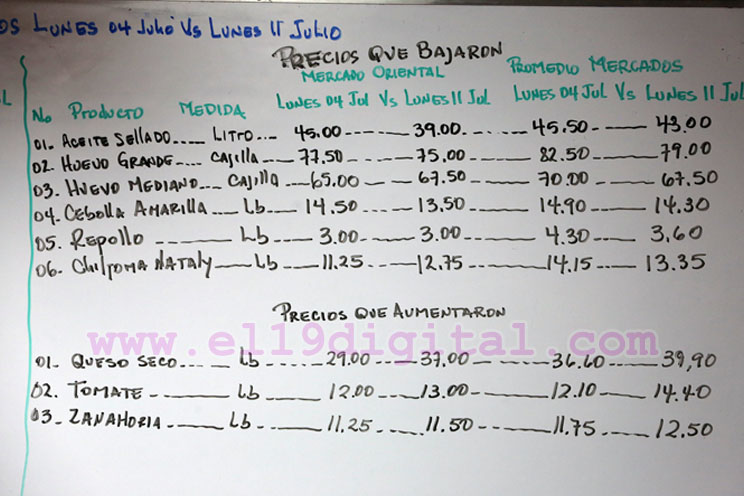 OS LUNES 04 JULIO VS LUNES 11 JULIO
PRECIOS QUE BAJARON
MERCADO ORIENTAL PROMEDIO MERCADOS
No PRODUCTO MEDIDA LUNES 04 JUL VS LUNES 11 JUL LUNES 04 JUL VS LUNES 11 JUL
01. ACEITE SELLADO.... LITRO... 45.00 ------- 39.00 ------- 45.50 ------- 43.00
02. HUEVO GRANDE---- CAJILLA--- 77.50 ------- 75.00 ------- 82.50 ------- 79.00
03. HUEVO MEDIANO---- CAJILLA--- 65.00 ------- 67.50 ------- 70.00 ------- 67.50
04. CEBOLLA AMARILLA ---- Lb ---- 14.50 ------- 13.50 ------- 14.90 ------- 14.30
05. REPOLLO ------- Lb ---- 3.00 ------- 3.00 ------- 4.30 ------- 3.60
06. CHILTOMA NATALY ---- Lb ---- 11.25 ------- 12.75 ------- 14.15 ------- 13.35
PRECIOS QUE AUMENTARON
www.el19digital.com
01. QUESO SECO.... Lb ---- 29.00 ------- 37.00 ------- 36.60 ------- 39,90
02. TOMATE ------- Lb ---- 12.00 ------- 13.00 ------- 12.10 ------- 14.40
03- ZANAHORIA ------- Lb ---- 11.25 ------- 11.50 ------- 11.75 ------- 12.50